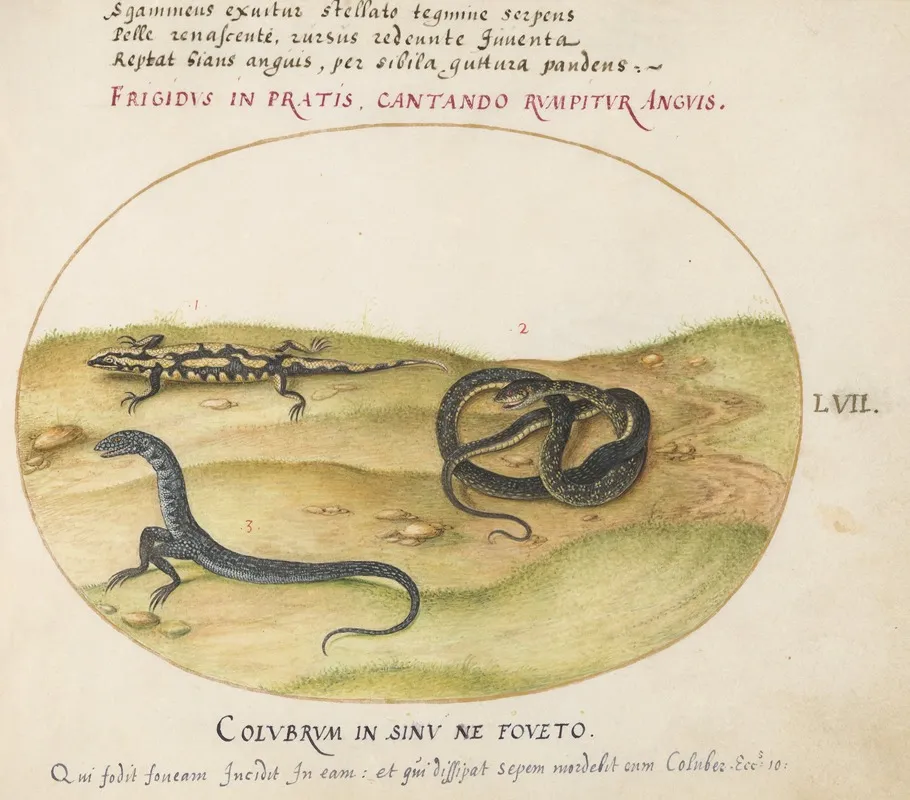 Sgammeus exuitur stellato tegmine serpens
Pelle renascente, rursus redeunte Juuenta
Reptat hians anguis, per sibila guttura pandens :~
FRIGIDVS IN PRATIS, CANTANDO RVMPITVR ANGVIS.
·1·
2
·3·
LVII.
COLVBRVM IN SINV NE FOVETO.
Qui fodit foueam Incidit In eam : et qui dissipat sepem mordebit eum Coluber. Ecc^s 10: